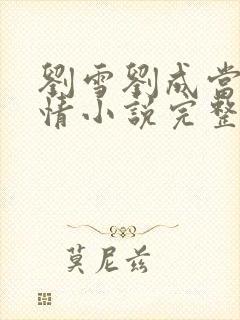 劉雪劉成當
情小說完整
莫尼茲